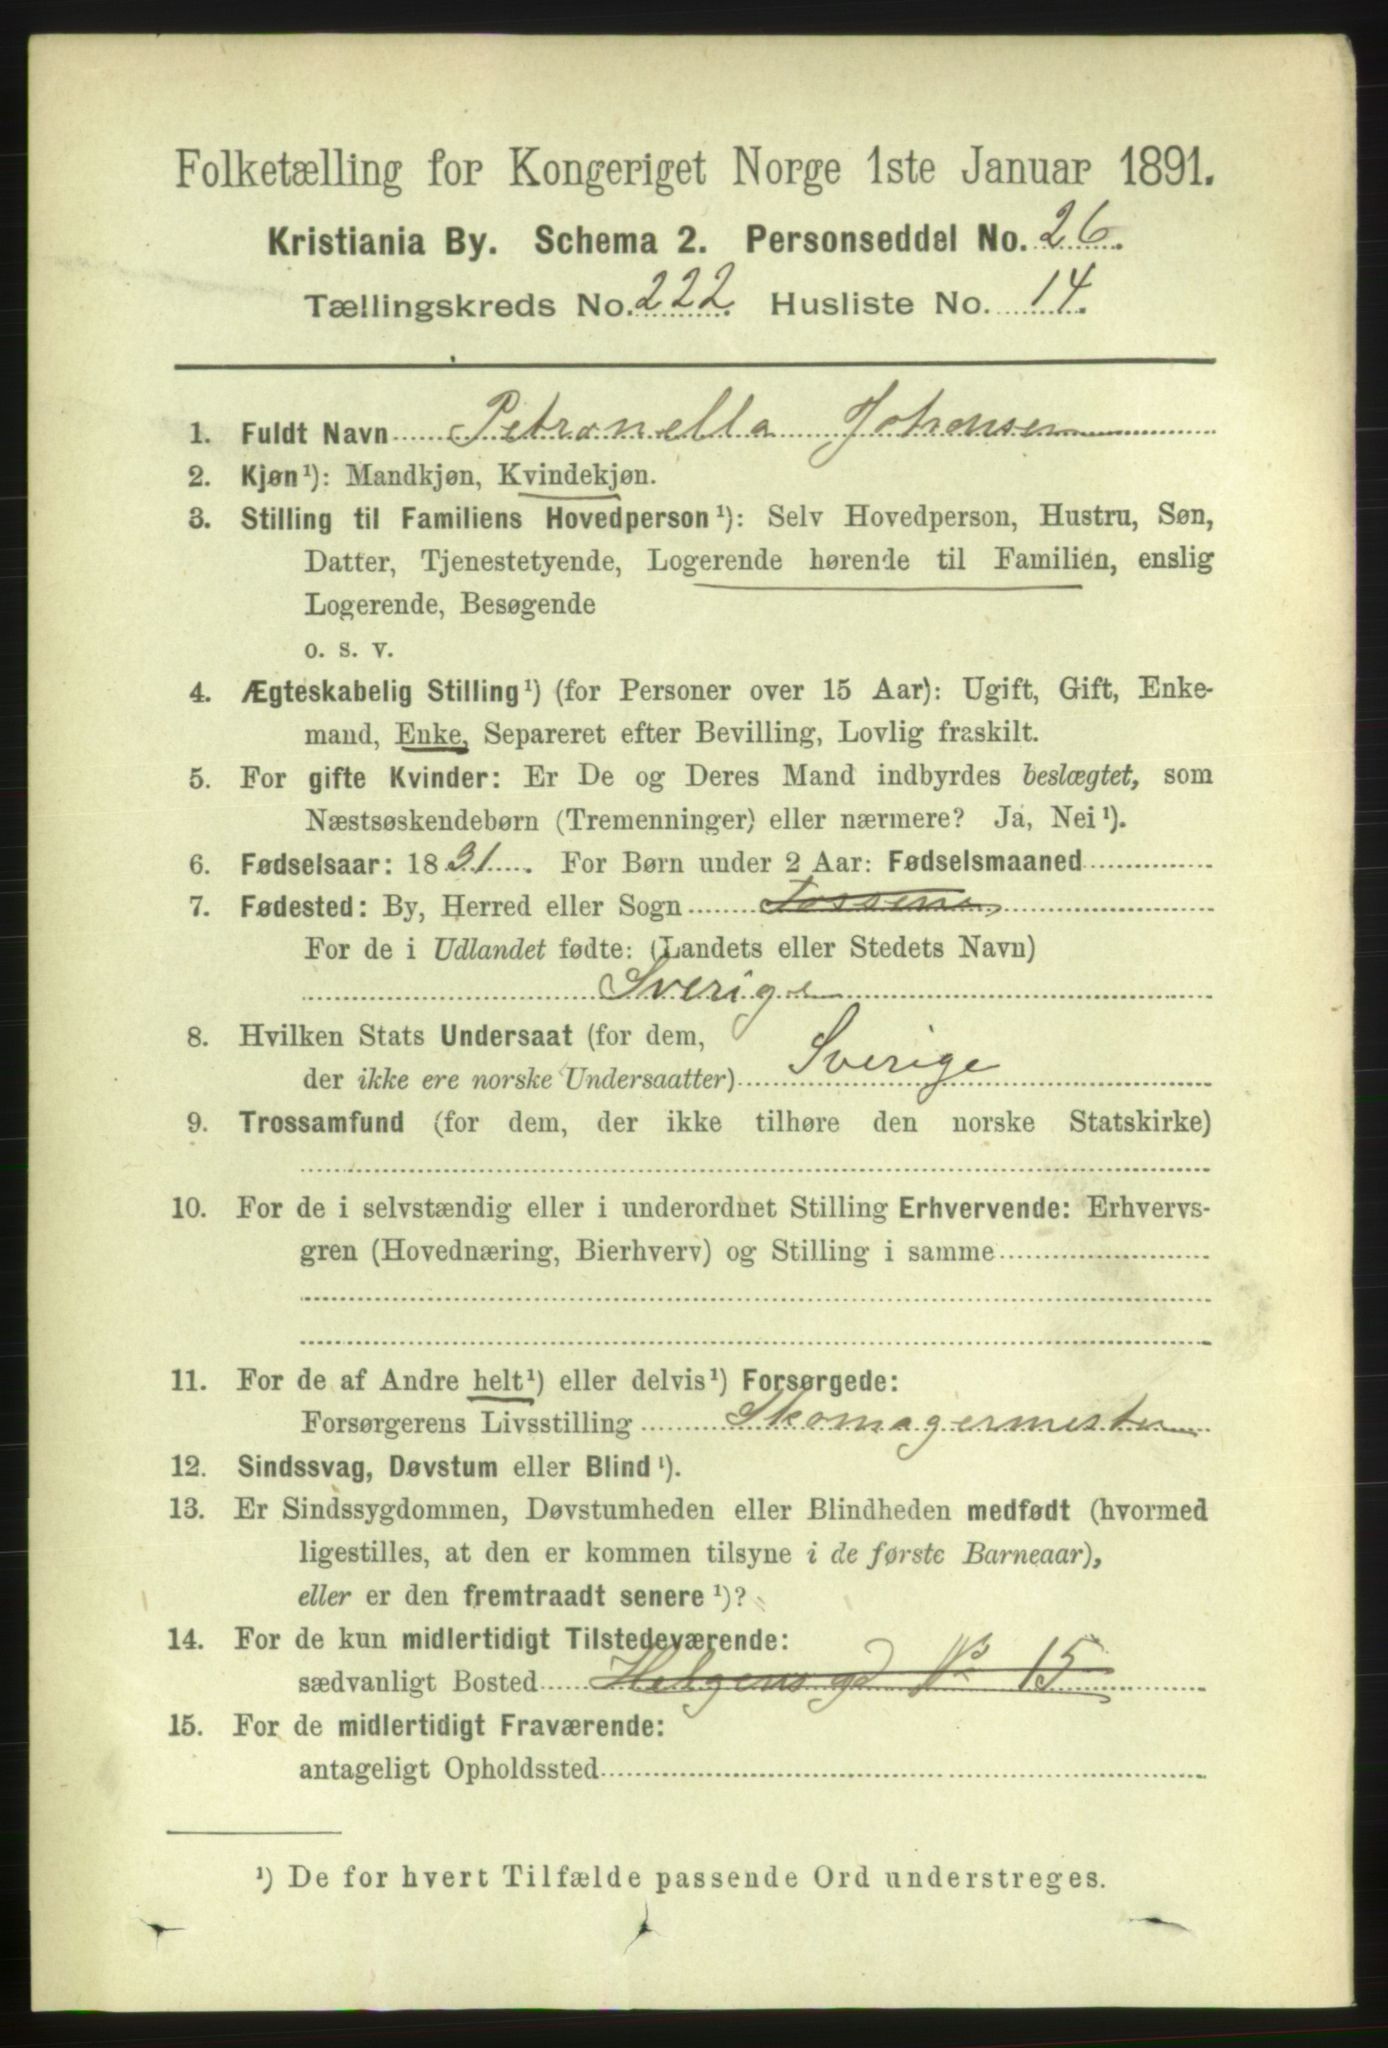 Folketælling for Kongeriget Norge 1ste Januar 1891.
Kristiania By. Schema 2. Personseddel No. 26.
Tællingskreds No. 222. Husliste No. 14.
1. Fuldt Navn Petronella Johansen
2. Kjøn¹): Mandkjøn, Kvindekjøn.
3. Stilling til Familiens Hovedperson¹): Selv Hovedperson, Hustru, Søn,
Datter, Tjenestetyende, Logerende hørende til Familien, enslig
Logerende, Besøgende
o. s. v.
4. Ægteskabelig Stilling¹) (for Personer over 15 Aar): Ugift, Gift, Enke-
mand, Enke, Separeret efter Bevilling, Lovlig fraskilt.
5. For gifte Kvinder: Er De og Deres Mand indbyrdes beslægtet, som
Næstsøskendebørn (Tremenninger) eller nærmere? Ja, Nei¹).
6. Fødselsaar: 1831. For Børn under 2 Aar: Fødselsmaaned
7. Fødested: By, Herred eller Sogn
For de i Udlandet fødte: (Landets eller Stedets Navn)
Sverige
8. Hvilken Stats Undersaat (for dem,
der ikke ere norske Undersaatter) Sverige
9. Trossamfund (for dem, der ikke tilhøre den norske Statskirke)
10. For de i selvstændig eller i underordnet Stilling Erhvervende: Erhvervs-
gren (Hovednæring, Bierhverv) og Stilling i samme
11. For de af Andre helt¹) eller delvis¹) Forsørgede:
Forsørgerens Livsstilling Skomagermester
12. Sindssvag, Døvstum eller Blind¹).
13. Er Sindssygdommen, Døvstumheden eller Blindheden medfødt (hvormed
ligestilles, at den er kommen tilsyne i de første Barneaar),
eller er den fremtraadt senere¹)?
14. For de kun midlertidigt Tilstedeværende:
sædvanligt Bosted Helgensgd No 15
15. For de midlertidigt Fraværende:
antageligt Opholdssted
¹) De for hvert Tilfælde passende Ord understreges.